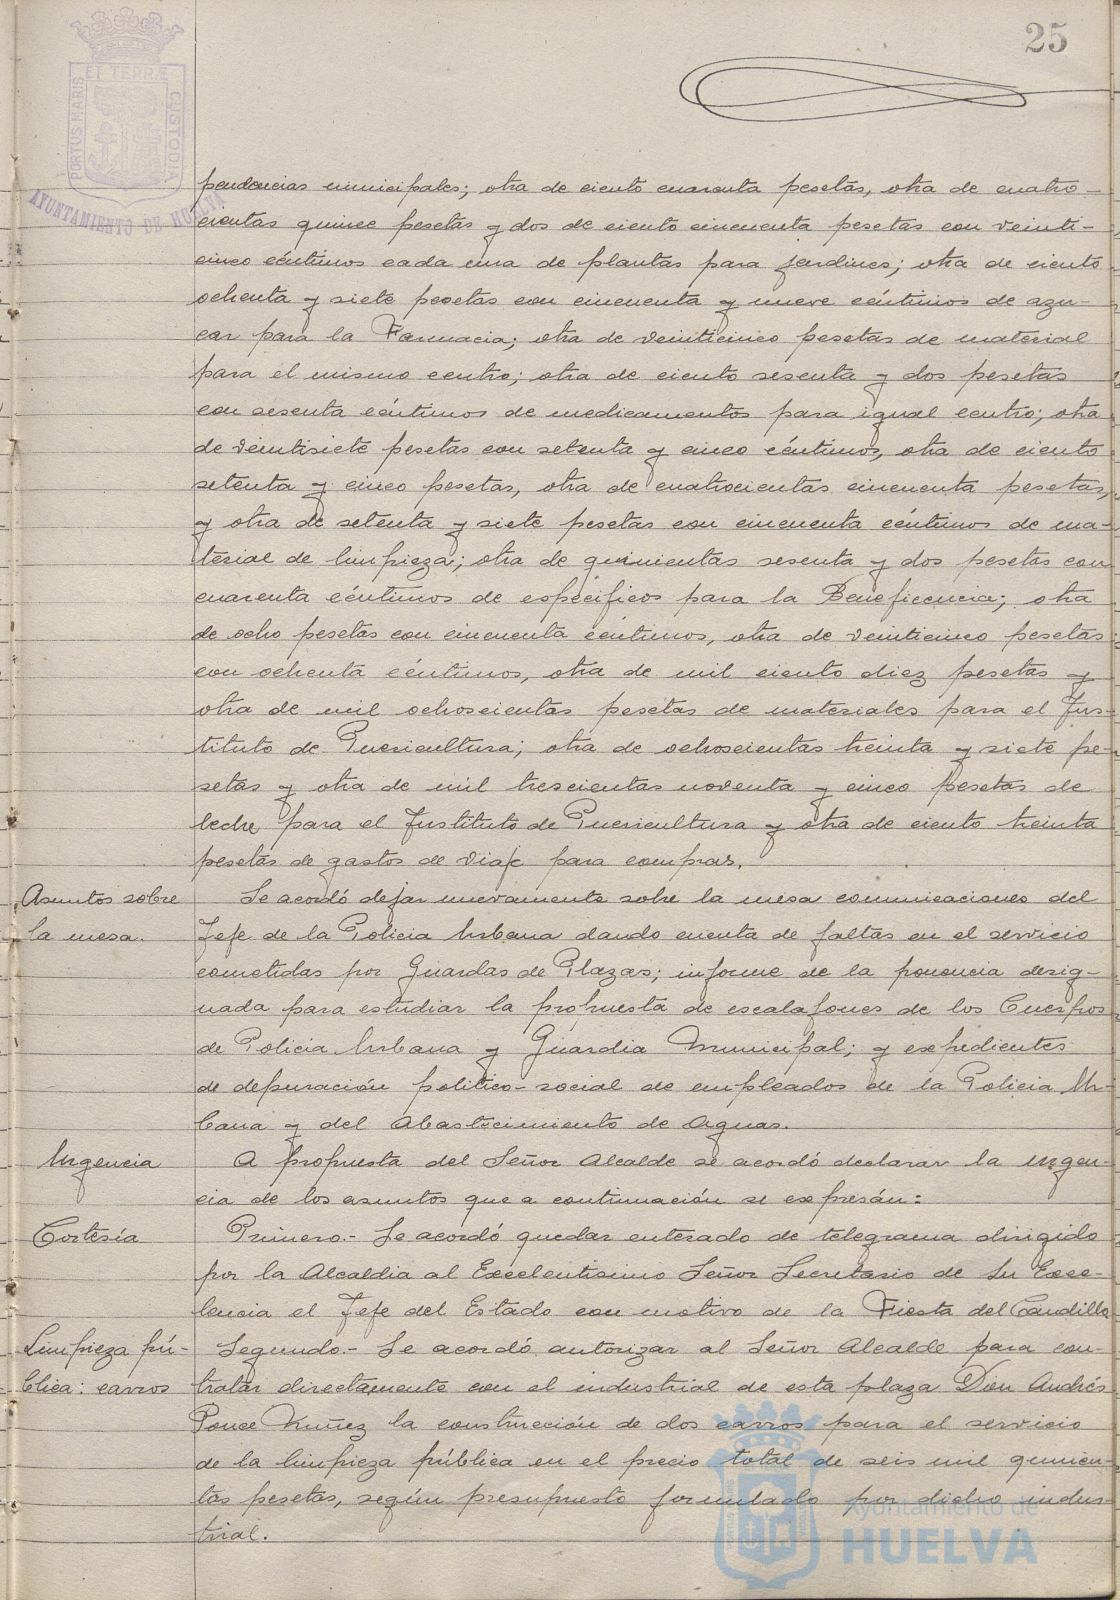 25
ET TERRÆ
PORTUS MARIS
CUSTODIA
AYUNTAMIENTO DE HUELVA
pendencias municipales; otra de ciento cuarenta pesetas, otra de cuatro-
cientas quince pesetas y dos de ciento cincuenta pesetas con veinti-
cinco céntimos cada una de plantas para jardines; otra de ciento
ochenta y siete pesetas con cincuenta y nueve céntimos de azu-
car para la Farmacia; otra de veinticinco pesetas de material
para el mismo centro; otra de ciento sesenta y dos pesetas
con sesenta céntimos de medicamentos para igual centro; otra
de veintisiete pesetas con setenta y cinco céntimos, otra de ciento
setenta y cinco pesetas, otra de cuatrocientas cincuenta pesetas,
y otra de setenta y siete pesetas con cincuenta céntimos de ma-
terial de limpieza; otra de quinientas sesenta y dos pesetas con
cuarenta céntimos de específicos para la Beneficencia; otra
de ocho pesetas con cincuenta céntimos, otra de veinticinco pesetas
con ochenta céntimos, otra de mil ciento diez pesetas y
otra de mil ochoscientas pesetas de materiales para el Ins-
tituto de Puericultura; otra de ochoscientas treinta y siete pe-
setas y otra de mil trescientas noventa y cinco pesetas de
leche para el Instituto de Puericultura y otra de ciento treinta
pesetas de gastos de viaje para compras.
Asuntos sobre
la mesa.
Se acordó dejar nuevamente sobre la mesa comunicaciones del
Jefe de la Policia Urbana dando cuenta de faltas en el servicio
cometidas por Guardas de Plazas; informe de la ponencia desig-
nada para estudiar la propuesta de escalafones de los Cuerpos
de Policia Urbana y Guardia Municipal; y expedientes
de depuración politico-social de empleados de la Policia Ur-
bana y del Abastecimiento de Aguas.
Urgencia
A propuesta del Señor Alcalde se acordó declarar la urgen-
cia de los asuntos que a continuación se expresan:
Cortesía
Primero.- Se acordó quedar enterado de telegrama dirigido
por la Alcaldia al Excelentisimo Señor Secretario de Su Exce-
lencia el Jefe del Estado con motivo de la Fiesta del Caudillo
Limpieza pú-
blica: carros
Segundo.- Se acordó autorizar al Señor Alcalde para con-
tratar directamente con el industrial de esta plaza Don Andrés
Ponce Nuñez la construcción de dos carros para el servicio
de la limpieza pública en el precio total de seis mil quinien-
tas pesetas, según presupuesto formulado por dicho indus-
trial.
Ayuntamiento de
HUELVA